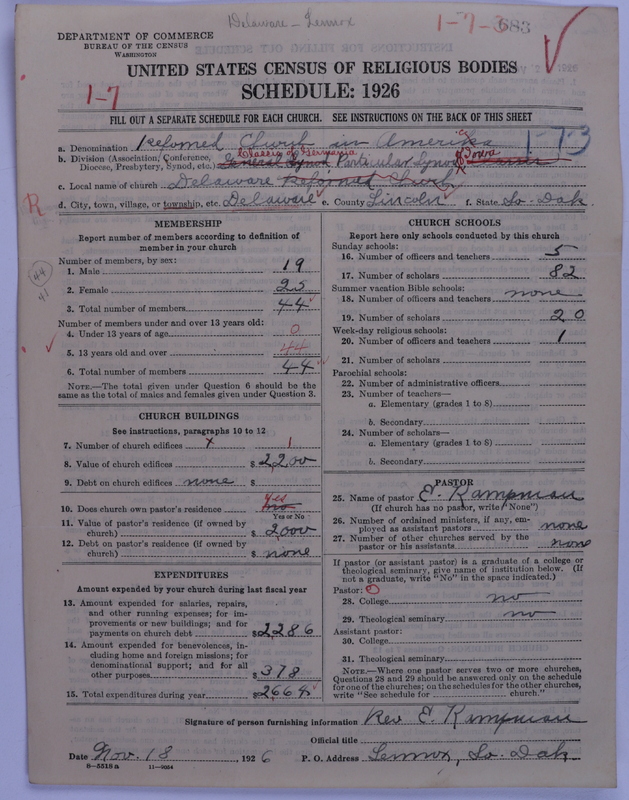 Delaware - Lennox
1-7-3
683
DEPARTMENT OF COMMERCE
BUREAU OF THE CENSUS
WASHINGTON
UNITED STATES CENSUS OF RELIGIOUS BODIES
SCHEDULE: 1926
1-7
FILL OUT A SEPARATE SCHEDULE FOR EACH CHURCH. SEE INSTRUCTIONS ON THE BACK OF THIS SHEET
1-7-3
a. Denomination Reformed Church in America
Classis of Germania
b. Division (Association, Conference, Diocese, Presbytery, Synod, etc.) General Synod Particular Synod of Iowa
c. Local name of church Delaware Reformed Church
R
d. City, town, village, or township, etc. Delaware e. County Lincoln f. State So. Dak.
MEMBERSHIP
Report number of members according to definition of member in your church
Number of members, by sex:
1. Male 19
2. Female 25
44
41
3. Total number of members 44
Number of members under and over 13 years old:
4. Under 13 years of age 0
5. 13 years old and over 44
6. Total number of members 44
NOTE.—The total given under Question 6 should be the same as the total of males and females given under Question 3.
CHURCH BUILDINGS
See instructions, paragraphs 10 to 12
7. Number of church edifices x 1
8. Value of church edifices $2200
9. Debt on church edifices none $
yes
10. Does church own pastor's residence? no
Yes or No
11. Value of pastor's residence (if owned by church) $2000
12. Debt on pastor's residence (if owned by church) $ none
EXPENDITURES
Amount expended by your church during last fiscal year
13. Amount expended for salaries, repairs, and other running expenses; for improvements or new buildings; and for payments on church debt $2286
14. Amount expended for benevolences, including home and foreign missions; for denominational support; and for all other purposes $378
15. Total expenditures during year $2664
CHURCH SCHOOLS
Report here only schools conducted by this church
Sunday schools:
16. Number of officers and teachers 5
17. Number of scholars 82
Summer vacation Bible schools:
18. Number of officers and teachers none
19. Number of scholars 20
Week-day religious schools:
20. Number of officers and teachers 1
21. Number of scholars
Parochial schools:
22. Number of administrative officers
23. Number of teachers—
a. Elementary (grades 1 to 8)
b. Secondary
24. Number of scholars—
a. Elementary (grades 1 to 8)
b. Secondary
PASTOR
25. Name of pastor E. Kampman
(If church has no pastor, write "None")
26. Number of ordained ministers, if any, employed as assistant pastors none
27. Number of other churches served by the pastor or his assistants none
If pastor (or assistant pastor) is a graduate of a college or theological seminary, give name of institution below. (If not a graduate, write "No" in the space indicated.)
Pastor:
28. College no
29. Theological seminary no
Assistant pastor:
30. College
31. Theological seminary
NOTE.—Where one pastor serves two or more churches, Questions 28 and 29 should be answered only on the schedule for one of the churches; on the schedules for the other churches, write "See schedule for church."
Signature of person furnishing information Rev. E. Kampman
Official title
Date Nov. 18, 1926 P. O. Address Lennox, So. Dak
8-5518a 11-9034